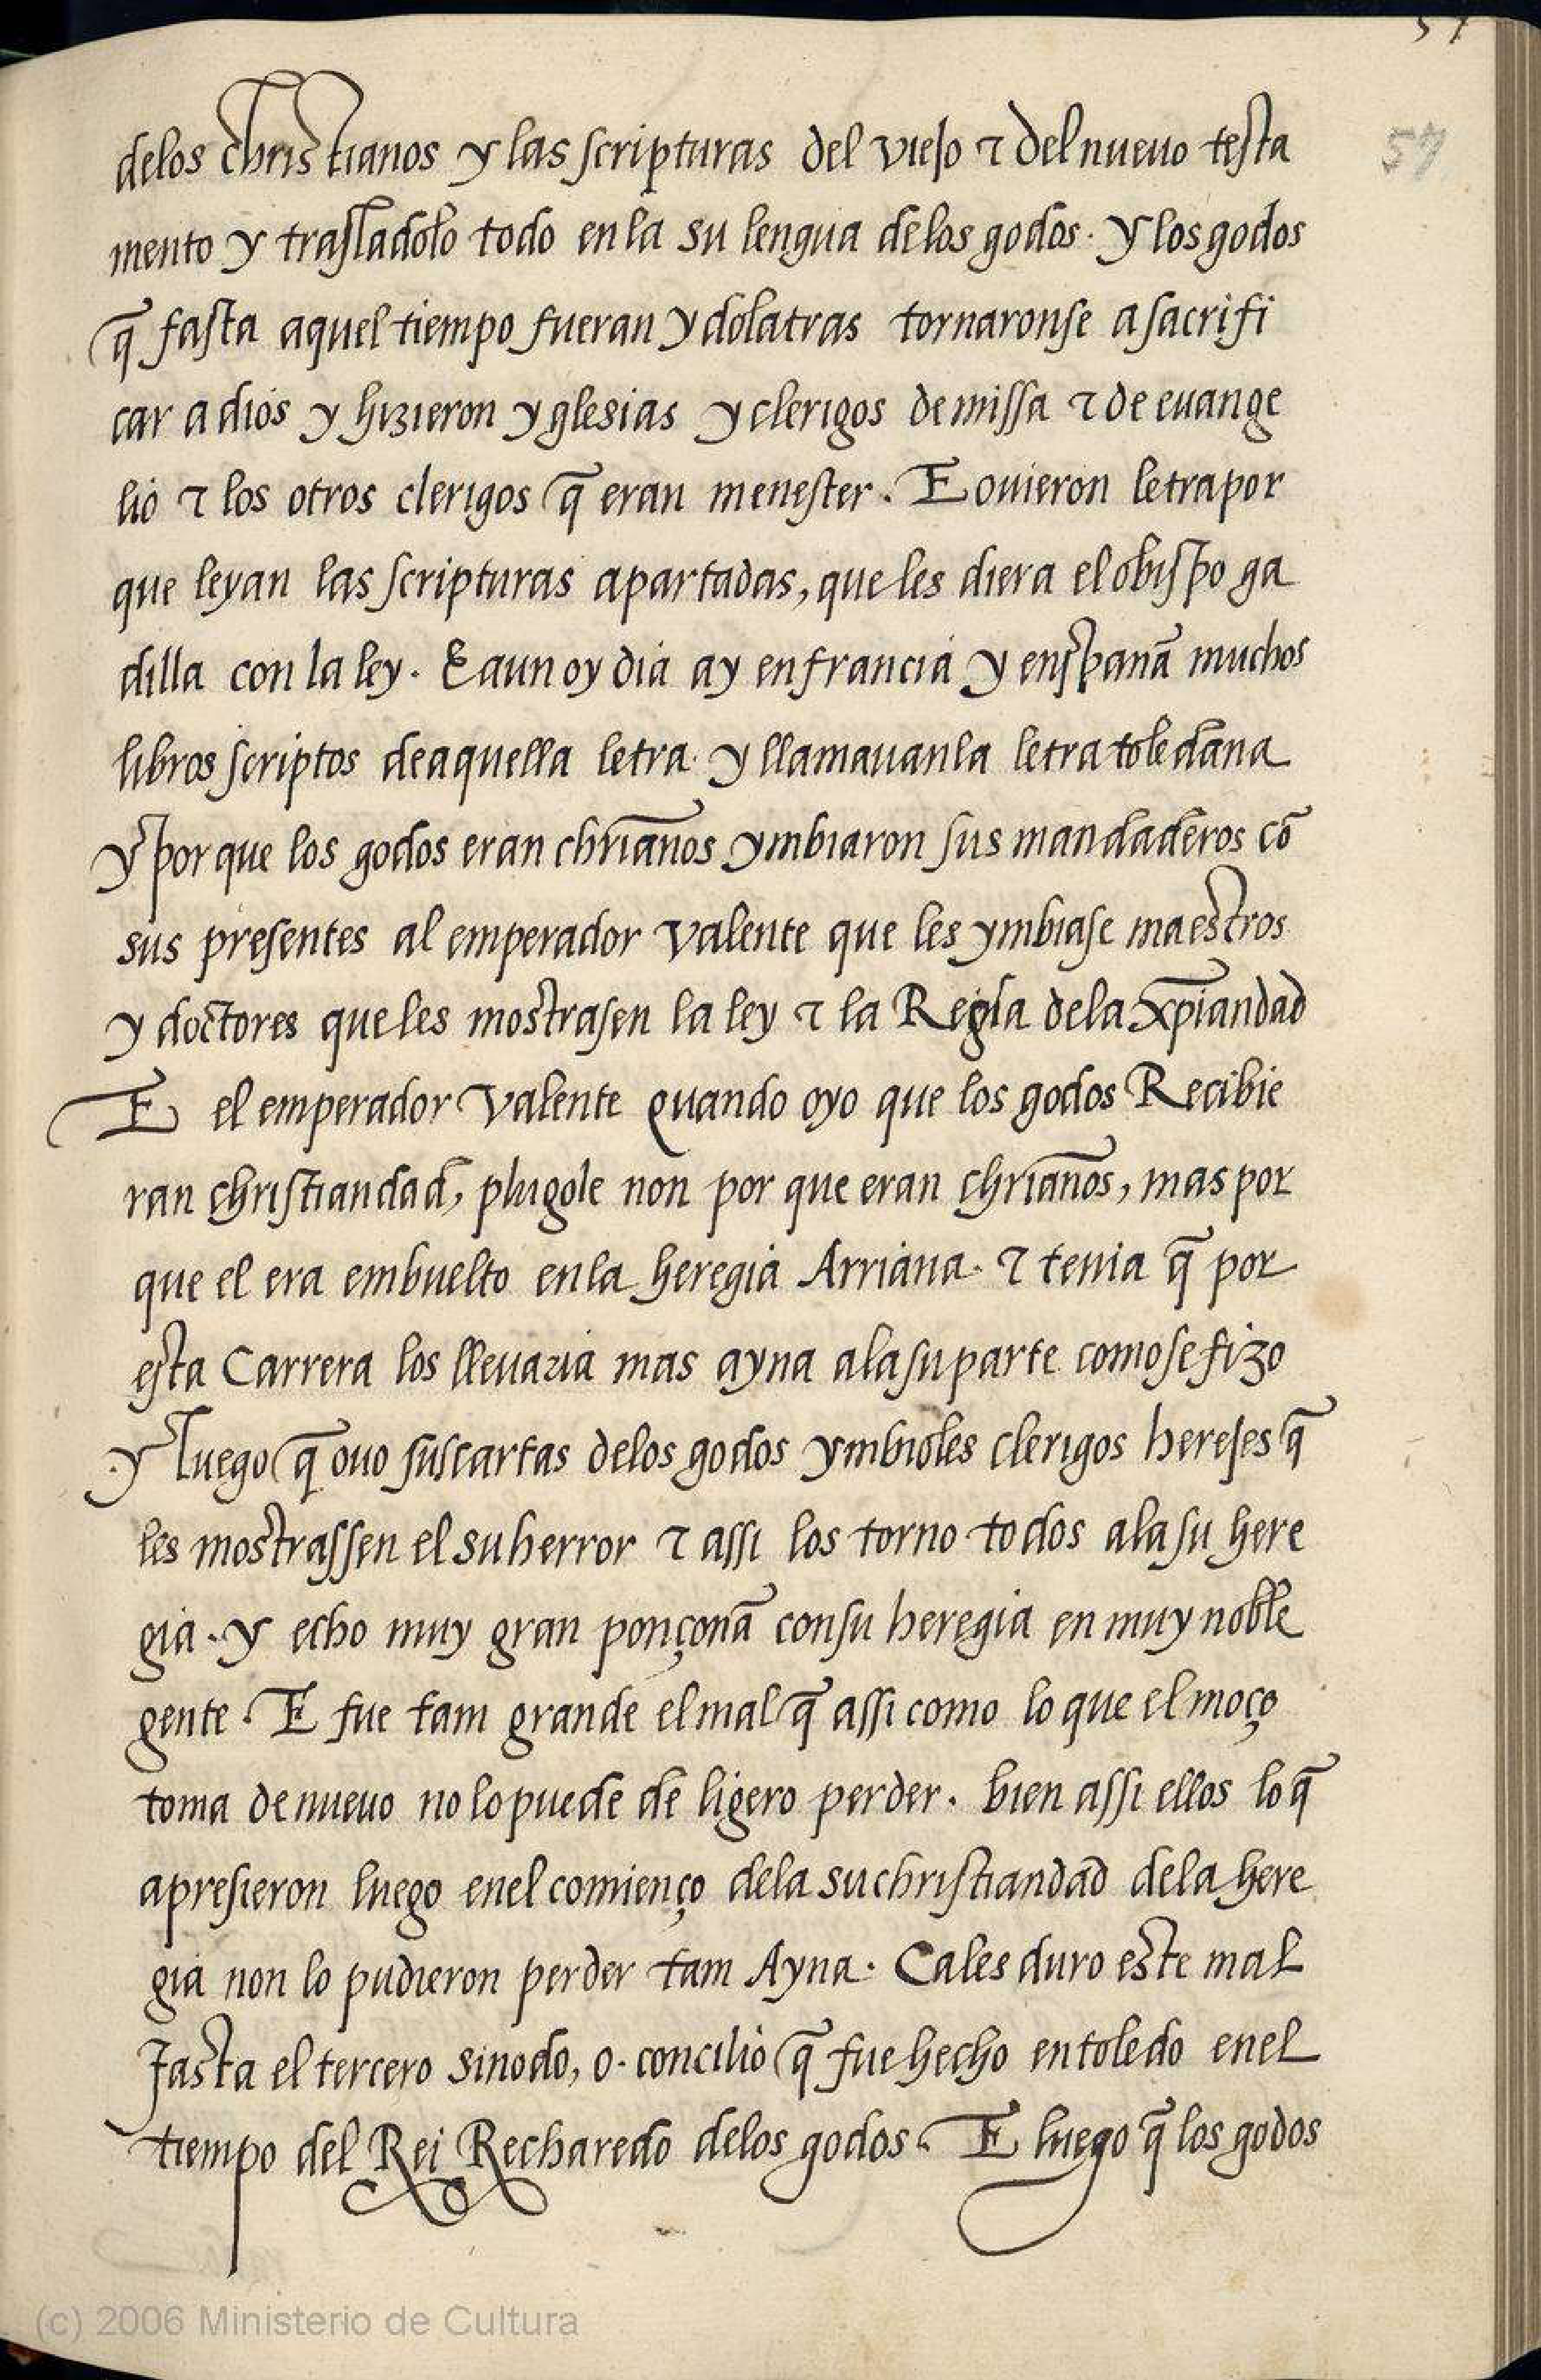 57
57
delos christianos y las scripturas del viejo ⁊ del nueuo testa
mento y trasladolo todo en la su lengua delos godos. y los godos
q̃ fasta aquel tiempo fueran ydolatras tornaronse a sacrifi
car a dios y hizieron yglesias y clerigos de missa ⁊ de euange
lio ⁊ los otros clerigos q̃ eran menester. E ouieron letra por
que leyan las scripturas apartadas, que les diera el obispo ga
dilla con la ley. E aun oy dia ay en francia y en spanã muchos
libros scriptos de aquella letra. y llamauanla letra toledana
y por que los godos eran chrianõs ymbiaron sus mandaderos cõ
sus presentes al emperador Valente que les ymbiase maestros
y doctores que les mostrasen la ley ⁊ la Regla dela xp̃iandad
E el emperador Valente quando oyo que los godos Recibie
ran christiandad, plugole non por que eran chrianõs, mas por
que el era embuelto en la heregia Arriana. ⁊ tenia q̃ por
esta Carrera los lleuaria mas ayna ala su parte como se fizo
y luego q̃ ouo sus cartas delos godos ymbioles clerigos herejes q̃
les mostrassen el su herror ⁊ assi los torno todos ala su here
gia. y echo muy gran ponçonã con su heregia en muy noble
gente. E fue tam grande el mal q̃ assi como lo que el moço
toma de nueuo no lo puede de ligero perder. bien assi ellos lo q̃
apresieron luego enel comienço dela su christiandad dela here
gia non lo pudieron perder tam Ayna. Cales duro este mal
fasta el tercero sinodo, o. concilio q̃ fue hecho en toledo enel
tiempo del Rei Recharedo delos godos. E luego q̃ los godos
(c) 2006 Ministerio de Cultura